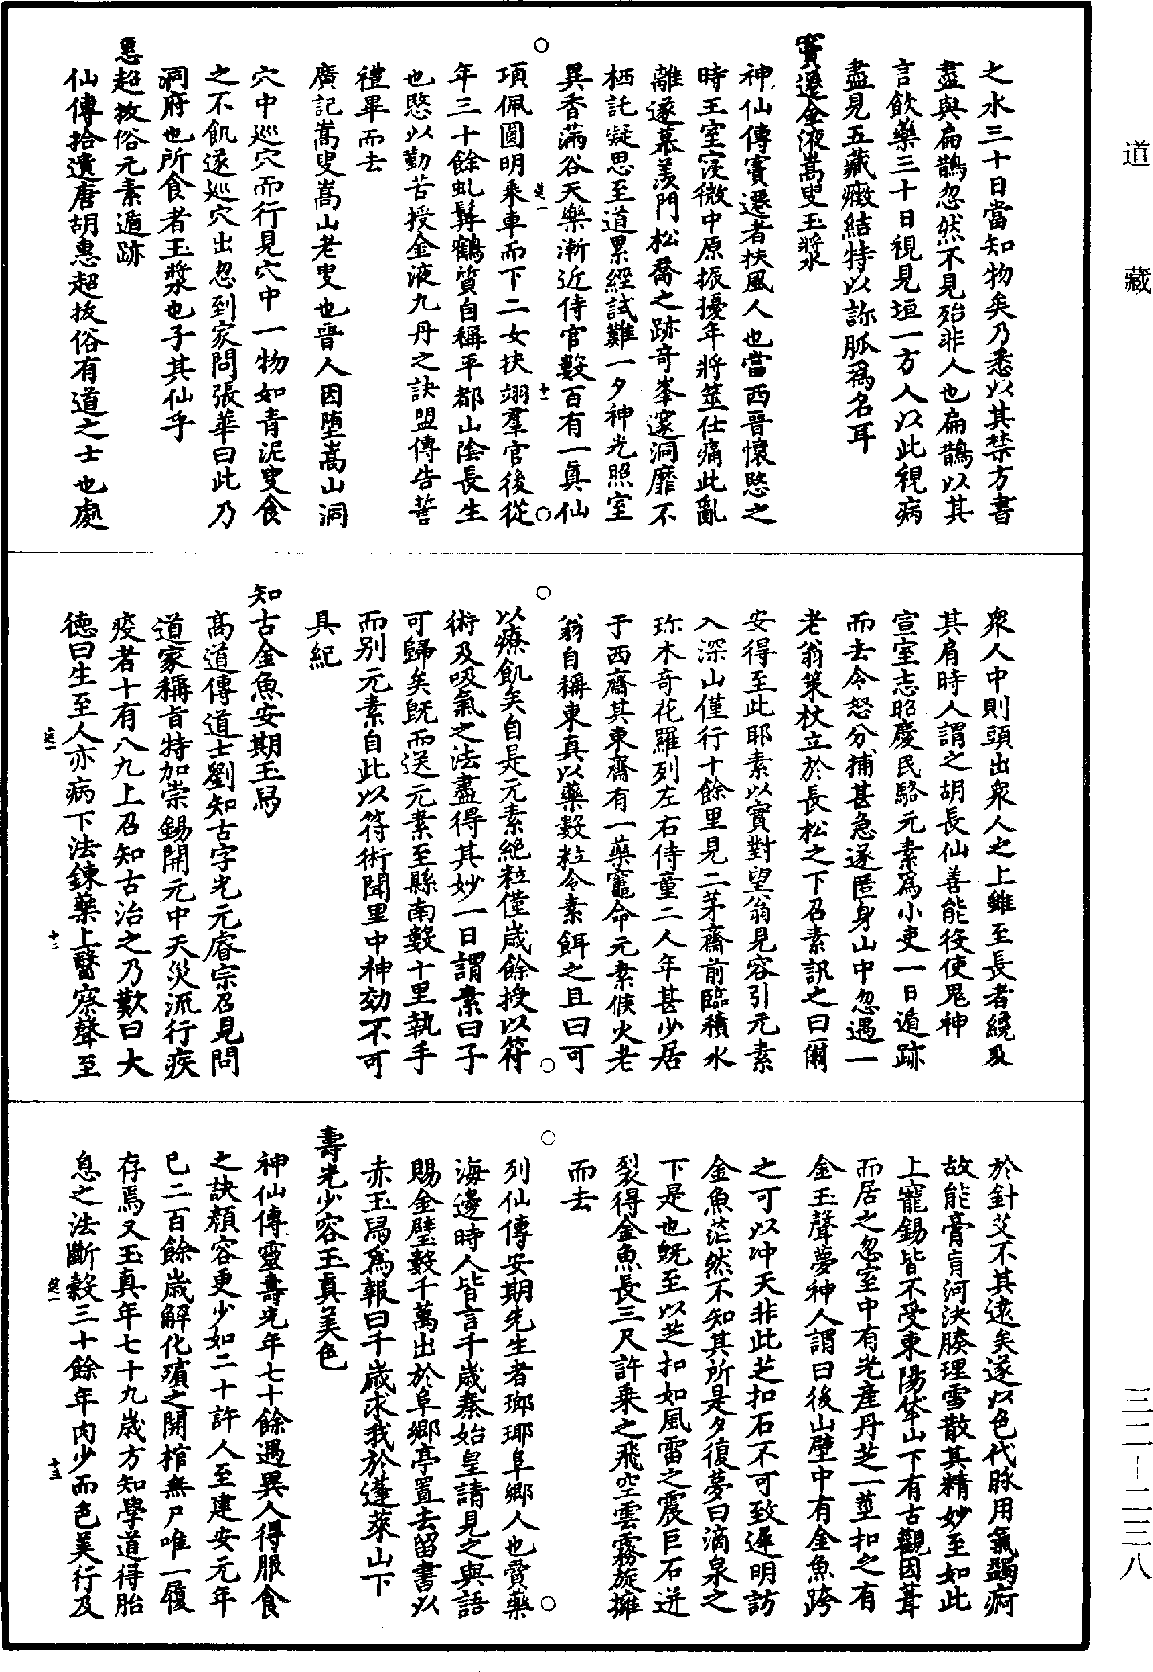 道藏
之水三十日當知物矣乃悉以其禁方書
盡與扁鵲忽然不見殆非人也扁鵲以其
言飲藥三十日視見垣一方人以此視病
盡見五藏癥結特以診脈為名耳
竇遷金液嵩叟玉漿
神仙傳竇遷者扶風人也當西晉懷愍之
時王室寖微中原振擾年將筮仕痛此亂
離遂慕羡門松喬之跡奇峯邃洞靡不
栖託凝思至道累經試難一夕神光照室
異香滿谷天樂漸近侍官數百有一真仙
項佩圓明乘車而下二女扶翊羣官後從
年三十餘虬髯鶴質自稱平都山陰長生
也愍以勤苦授金液九丹之訣盟傳告誓
禮畢而去
廣記嵩叟嵩山老叟也晉人因墮嵩山洞
穴中巡穴而行見穴中一物如青泥叟食
之不飢遂巡穴出忽到家問張華曰此乃
洞府也所食者玉漿也子其仙乎
惠超拔俗元素遁跡
仙傳拾遺唐胡惠超拔俗有道之士也處
衆人中則頭出衆人之上雖至長者纔及
其肩時人謂之胡長仙善能役使鬼神
宣室志昭慶民駱元素爲小吏一日遁跡
而去令怒分捕甚急遂匿身山中忽遇一
老翁策杖立於長松之下召素訊之曰爾
安得至此耶素以實對望翁見容引元素
入深山僅行十餘里見二茅齋前臨積水
珎木奇花羅列左右侍童二人年甚少居
于西齋其東齋有一藥竈命元素候火老
翁自稱東真以藥數粒令素餌之且曰可
以療飢矣自是元素絶粒僅歲餘授以符
術及吸氣之法盡得其妙一日謂素曰子
可歸矣既而送元素至縣南數十里執手
而别元素自此以符術聞里中神効不可
具紀
知古金魚安期玉舄
高道傳道士劉知古字光元睿宗召見問
道家稱旨特加崇錫開元中天災流行疾
疫者十有八九上召知古治之乃歎曰大
德曰生至人亦病下法鍊藥上醫察聲至
於針艾不其遠矣遂以色代脉用氣蠲痾
故能膏肓河決腠理雪散其精妙至如此
上寵錫皆不受東陽峯山下有古觀因葺
而居之忽室中有光產丹芝一莖扣之有
金玉聲夢神人謂曰後山壁中有金魚跨
之可以冲天非此芝扣石不可致遲明訪
金魚茫然不知其所是夕復夢曰滴泉之
下是也既至以芝扣如風雷之震巨石迸
裂得金魚長三尺許乘之飛空雲霧旋擁
而去
列仙傳安期先生者瑯琊阜鄉人也賣藥
海邊時人皆言千歲秦始皇請見之與語
賜金璧數千萬出於阜鄉亭置去留書以
赤玉舄爲報曰千歲求我於蓬萊山下
壽光少容玉真美色
神仙傳靈壽光年七十餘遇異人得服食
之訣顏容更少如二十許人至建安元年
已二百餘歲解化殯之開棺無尸唯一履
存焉又玉真年七十九歲方知學道得胎
息之法斷穀三十餘年肉少而色美行及
三二—二三八